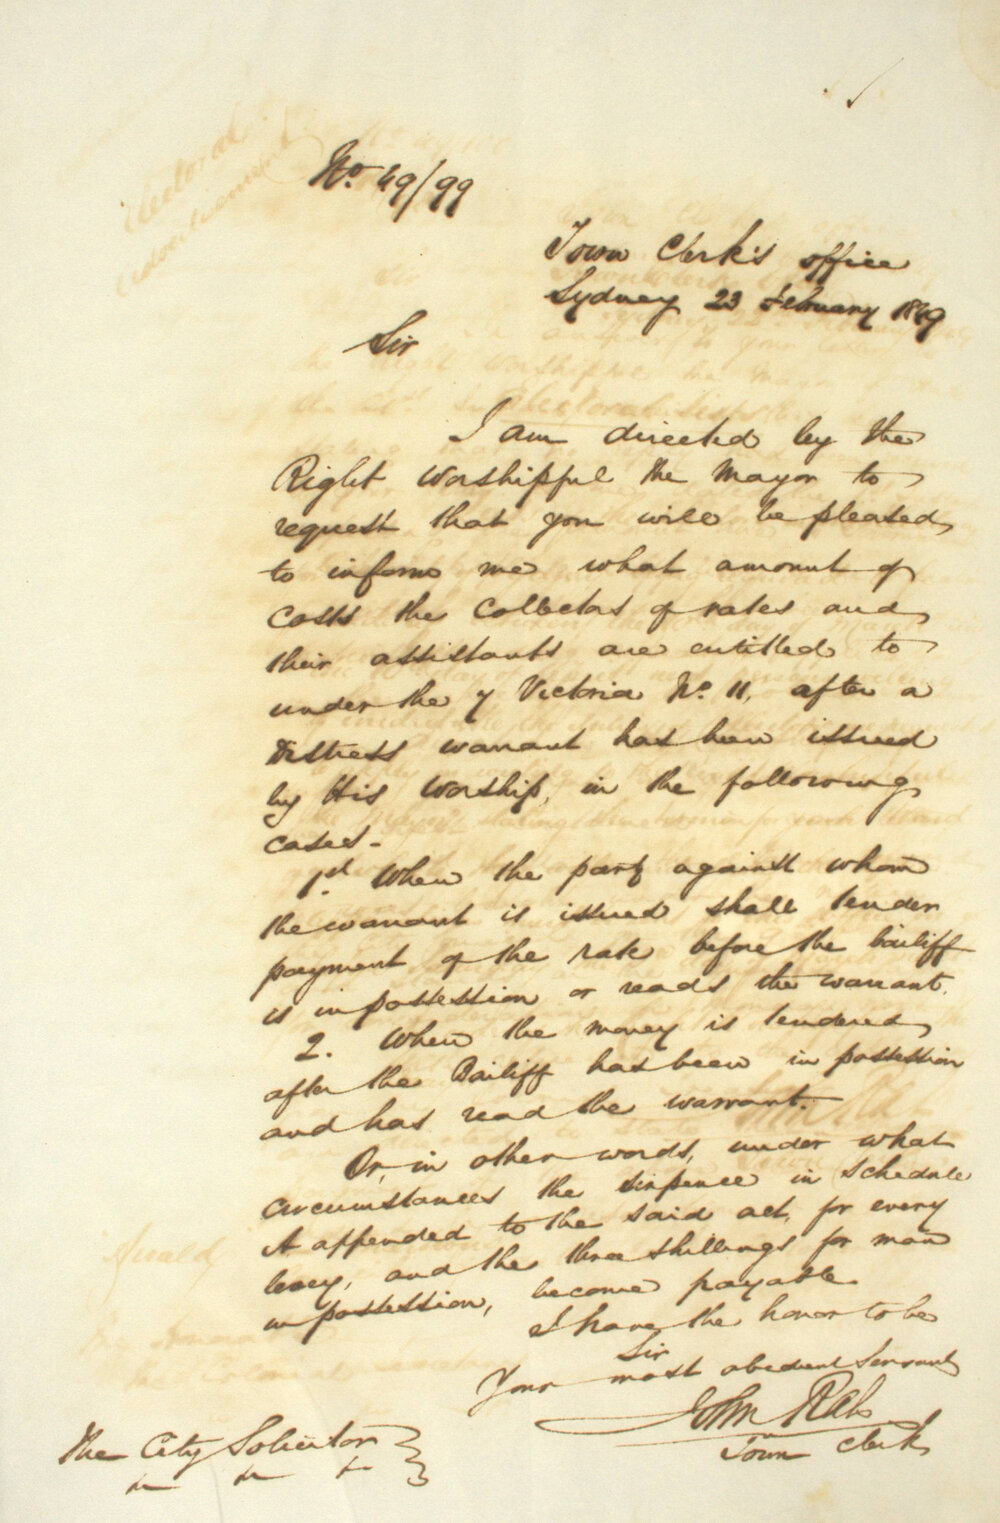 No. 49/99
Town Clerk's office
Sydney 23 February 1849
Sir
I am directed by the
Right Worshipful the Mayor to
request that you will be pleased
to inform me what amount of
costs the Collectors of rates and
their assistants are entitled to
under the 7 Victoria No. 11, after a
Distress warrant has been issued
by His Worship, in the following
cases -
1st When the party against whom
the warrant is issued shall tender
payment of the rate before the bailiff
is in possession or reads the warrant.
2. When the money is tendered
after the Bailiff has been in possession
and has read the warrant.
Or, in other words, under what
circumstances the sixpence in Schedule
A appended to the said act, for every
levy, and the three shillings for man
in possession, become payable.
I have the honor to be
Sir
Your most obedient Servant
John Rae
Town Clerk
The City Solicitor